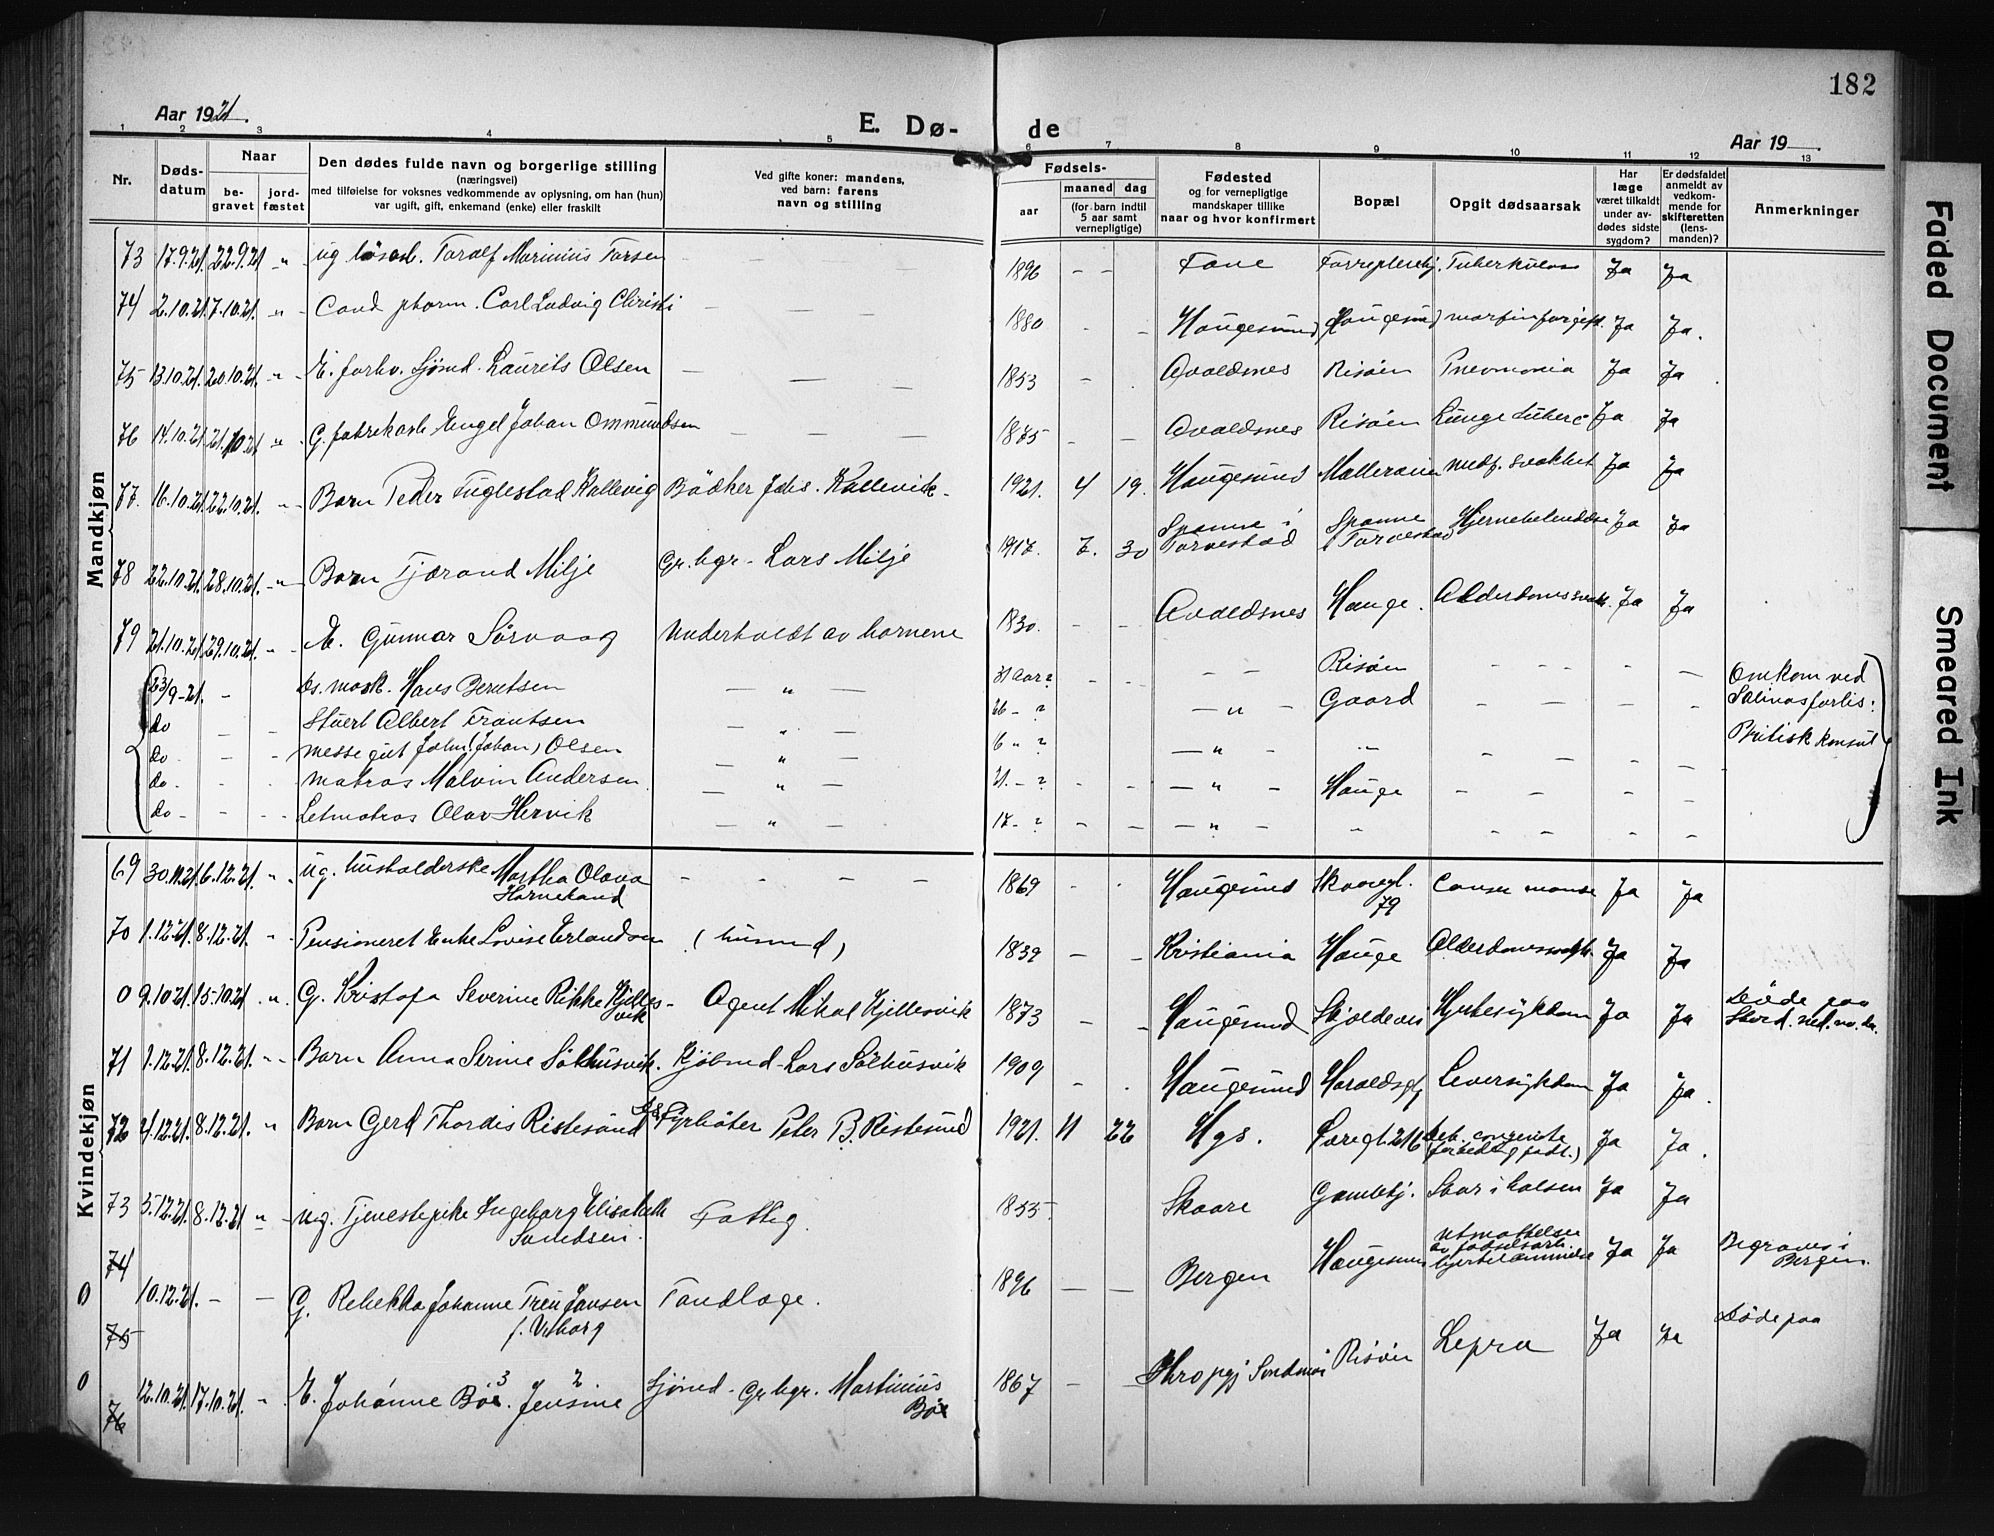 182
Aar 1921.
E. Dø-
de
Aar 19
1 2 3 4 5 6 7 8 9 10 11 12 13
Nr.
Døds-
datum
Naar
be-
gravet
jord-
fæstet
Den dødes fulde navn og borgerlige stilling
(næringsvei)
med tilføielse for voksnes vedkommende av oplysning, om han (hun)
var ugift, gift, enkemand (enke) eller fraskilt
Ved gifte koner: mandens,
ved barn: farens
navn og stilling
Fødsels-
aar
maaned
dag
(for barn indtil
5 aar samt
vernepligtige)
Fødested
og for vernepligtige
mandskaper tillike
naar og hvor konfirmert
Bopæl
Opgit dødsaarsak
Har
læge
været tilkaldt
under av-
dødes sidste
sygdom?
Er dødsfaldet
anmeldt av
vedkom-
mende for
skifteretten
(lens-
manden)?
Anmerkninger
Mandkjøn
73 17.9.21 22.9.21 " ug løsarb. Toralf Marinius Torsen - - - - 1896 - - Fane Tuberkulose Ja Ja
74 2.10.21. 7.10.21. " Cand pharm. Carl Ludvig Christi - - - 1880 - - Haugesund Haugesund morfinforgift. Ja Ja.
75 13.10.21. 20.10.21. " E. forhv. Sjømd. Laurits Olsen - - - 1853 - . Avaldsnes Risøen Pneumonia Ja Ja
76 14.10.21 21.10.21 " G. fabrikarb Engel Johan Ommundsen - - - 1875 - - Avaldsnes Risøen Lunge tuberc Ja Ja
77. 16.10.21. 22.10.21. " Barn Peder Fuglestad Kallevig Bødker Johs. Kallevik. 1921. 4 19. Haugesund medf. svakhet Ja Ja
78 22.10.21. 28.10.21. " Barn Tjærand Milje Gr.bgr. Lars Milje 1917. 7. 30 Spanne i Torvestad Spanne Torvestad Hjernebetendelse Ja Ja
79 21.10.21. 29.10.21. " E. Gunnar Sørvaag Underholdt av barnene 1830. - - Avaldsnes Hauge. Alderdomssvakh. Ja Ja
23/9-21. - Hans Berntsen - " - 31 Aar? - - - - Risøen - - - - Omkom ved
Salinas forlis:
do - - Stuert Albert Frantsen - " - 26 - ? - " - Gaard
do - - messegut John (Johan) Olsen - " - 16 " ? - " - " - - - - Britisk konsul
do - - - matros Malvin Andersen - " - 21. - ? - - - " - Hauge - - - -
do - - - Letmatros Olav Hervik - " - 17 - ? - - - " - " - - - -
Kvindekjøn
69 30.11.21. 6.12.21. " ug. husholderske Martha Olava
Horneland - - - - 1869 - . Haugesund Skaaregt.
79 Cancer mamae Ja Ja
70 1.12.21. 8.12.21. " Pensioneret Enke Lovise Erlandsen (husmd) 1839 - - Kristiania Hauge Alderdomssvakh. Ja Ja
0 9.10 21. 15.10.21 " G. Kristofa Severine Rikke Kjelles-
vik Agent Mikal Kjellesvik 1873 - - Haugesund Skjoldevei Hjertesykdom Ja Ja Døde paa
71 1.12.21. 8.12.21. " Barn Anna Serine Sølhusvik. Kjøbmd Lars Sølhusvik 1909 - . Haugesund Haraldsgt Leversykdom Ja Ja.
72 4.12.21. 8.12.21. " Barn Gerd Thordis Ristesund Fyrbøter Peter B. Ristesund 1921. 11 22 Hgs. 216 deb. congenite
(fortidlig født.) Ja Ja.
73 5.12.21. 8.12.21 " ug. Tjenestepike Ingeborg Elisabeth
Svendsen. Fattig. 1855. Skaare Gamlehj. Saar i halsen Ja Ja
74
0 10.12.21. - - G. Rebekka Johanne Treu Jansen
f. Viborg Tandlæge. 1896 - - Bergen Haugesund utmattelse
av fødselsarb.
hjertelammelse Ja Ja Begraves i
Bergen.
75
0 12.10.21. 17.10.21. " E. Johanne Bøe 3. Jensine 2 Sjømd - Gr.bgr. Martinius
Bøe 1867 - - Risøen Lepra Ja Ja Døde paa
76
Faded Document
Smeared Ink